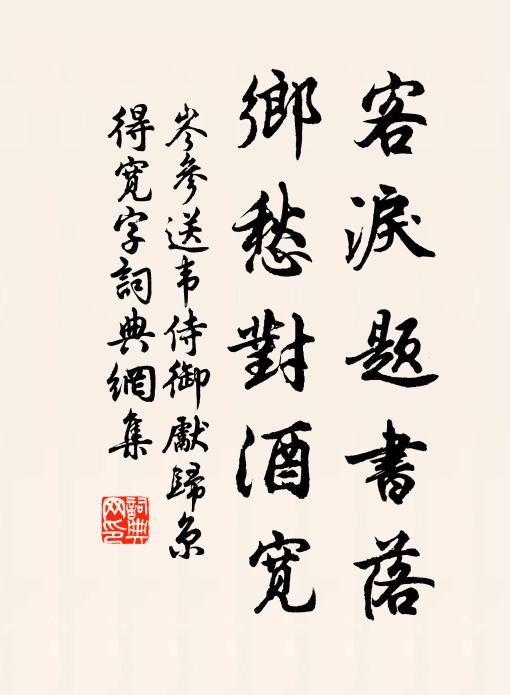 客淚題書落
鄉愁對酒寬
岑參送韦侍御獻歸京
得寬字詞典網集
詞典
网印